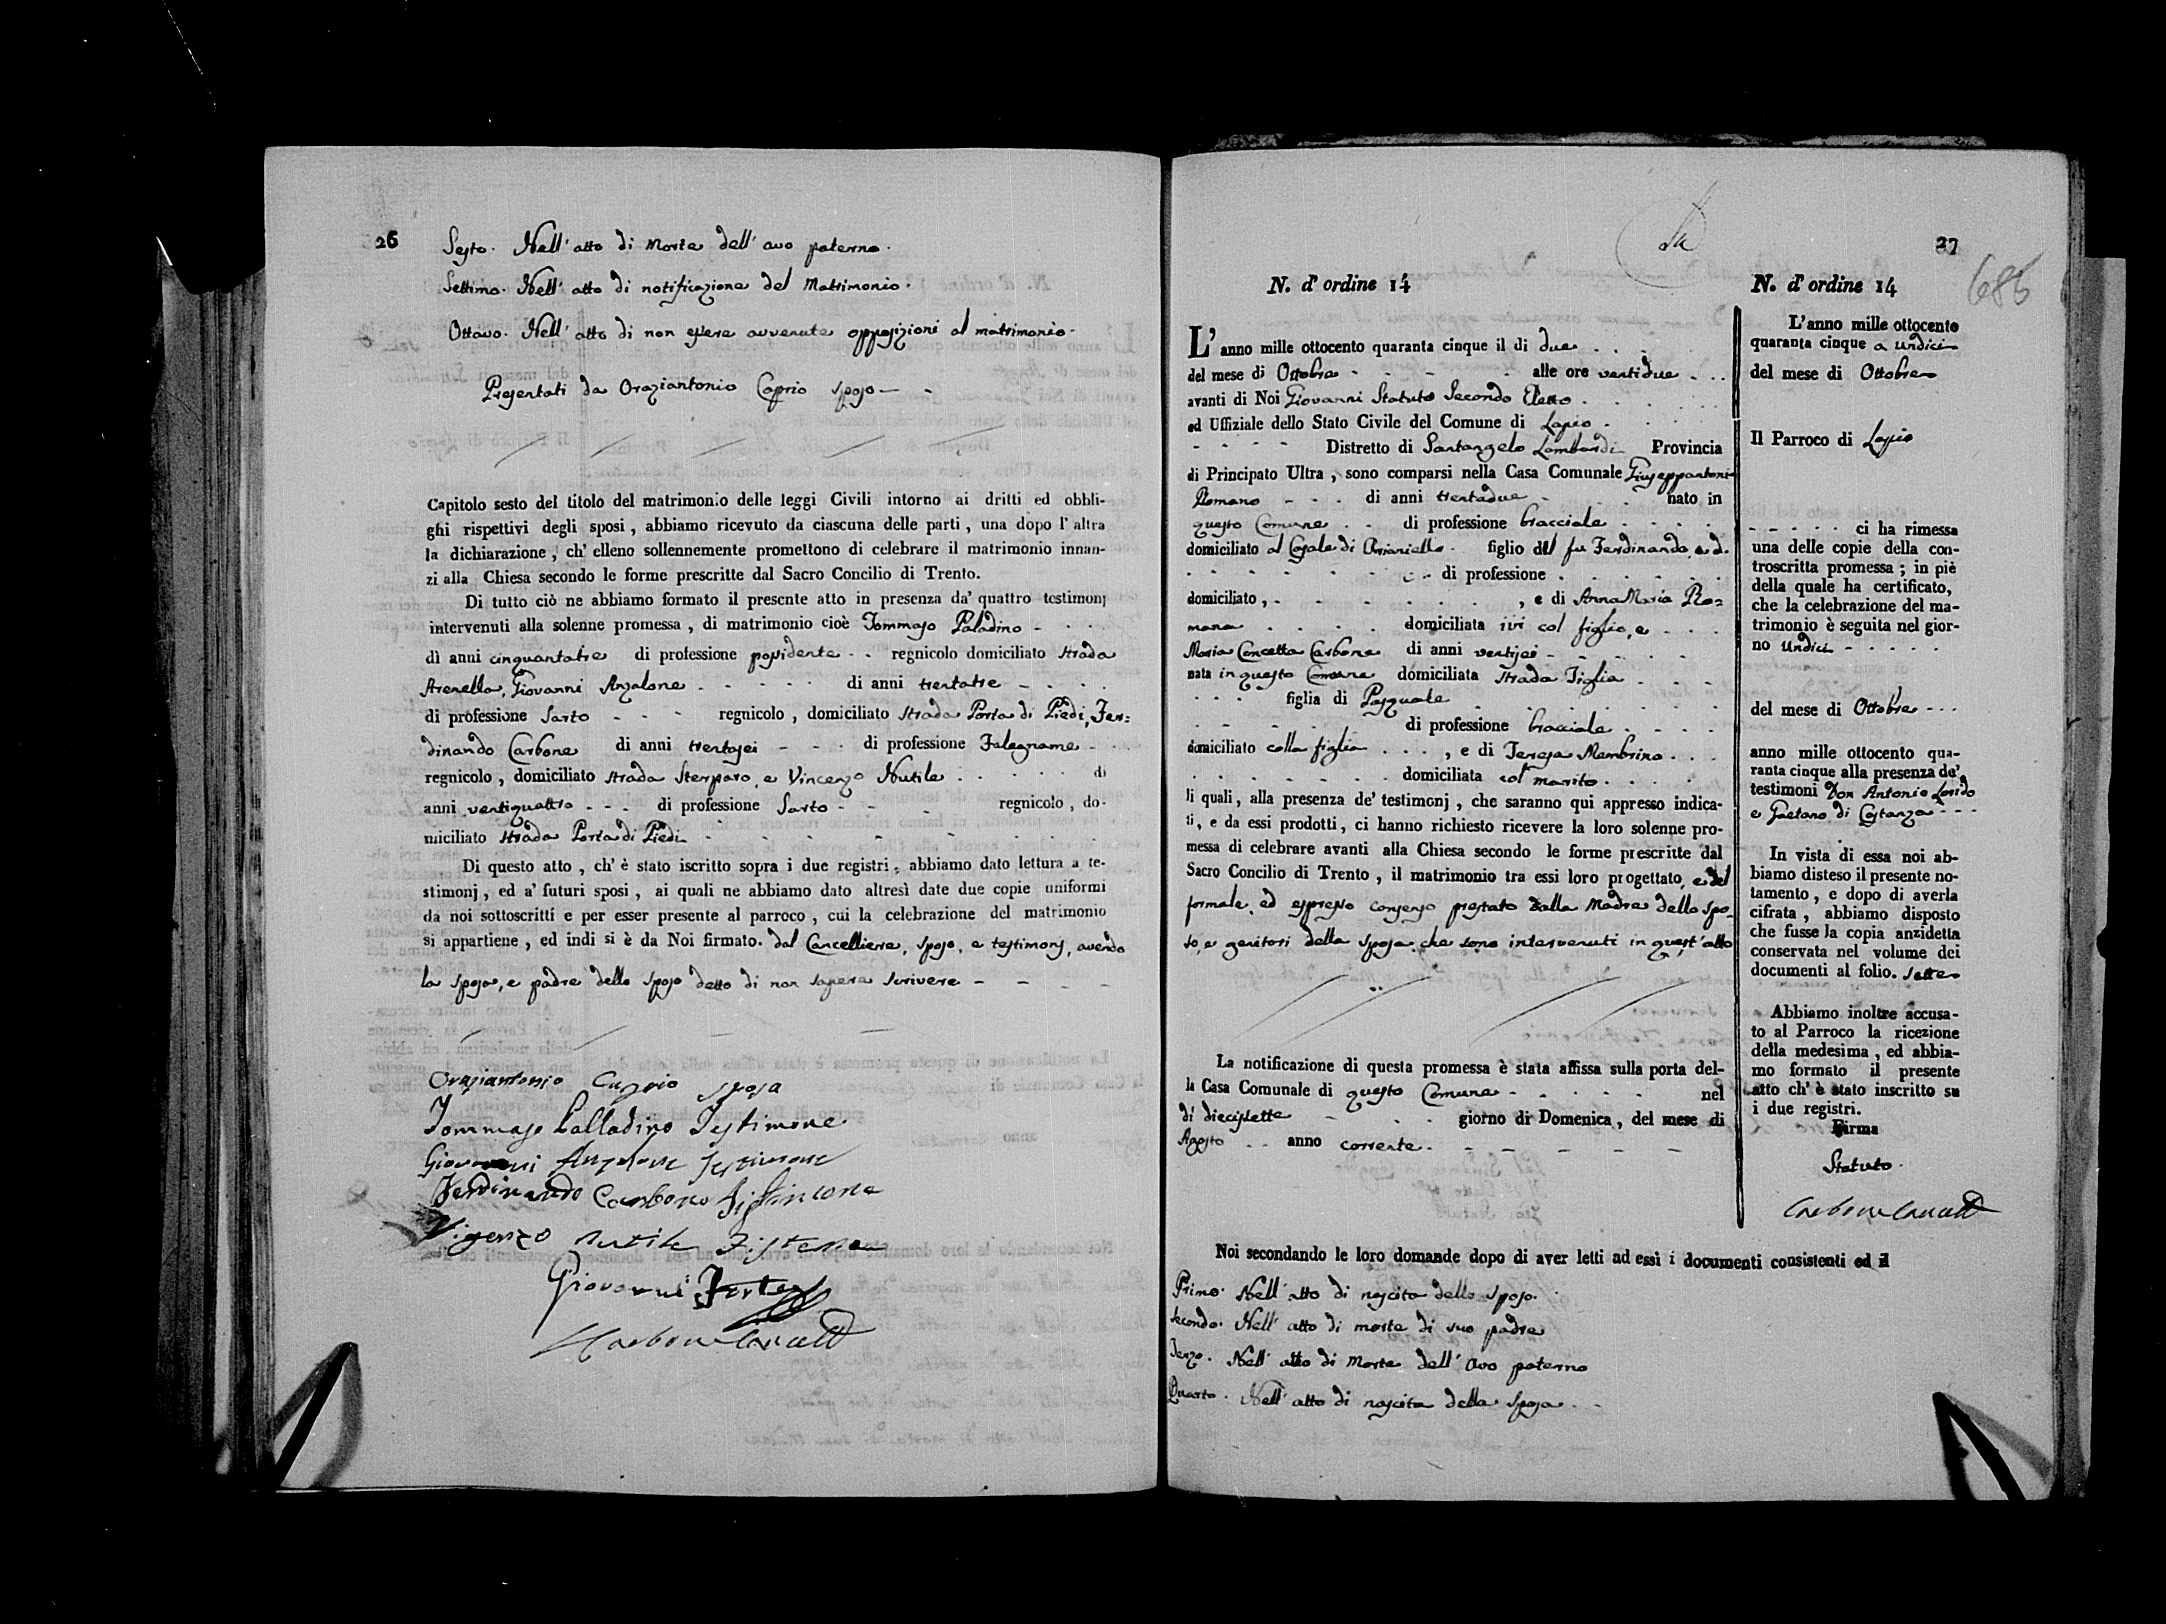 26
Sesto. Nell' atto di Morte dell' avo paterno.
Settimo. Nell' atto di notificazione del Matrimonio.
Ottavo. Nell' atto di non essere avvenute opposizioni al matrimonio.
Presentati da Oraziantonio Caprio sposo
Capitolo sesto del titolo del matrimonio delle leggi Civili intorno ai dritti ed obbli-
ghi rispettivi degli sposi, abbiamo ricevuto da ciascuna delle parti, una dopo l'altra
la dichiarazione, ch' elleno sollennemente promettono di celebrare il matrimonio innan-
zi alla Chiesa secondo le forme prescritte dal Sacro Concilio di Trento.
Di tutto ciò ne abbiamo formato il presente atto in presenza da' quattro testimonj
intervenuti alla solenne promessa, di matrimonio cioè Tommaso Paladino
di anni cinquantatre di professione possidente regnicolo domiciliato strada
Arenella, Giovanni Anzalone di anni trentatre
di professione Sarto regnicolo, domiciliato strada Porta di Piedi, Fer=
dinando Carbone di anni trentasei di professione Falegname
regnicolo, domiciliato strada Sterparo, e Vincenzo Nutile di
anni ventiquattro di professione Sarto regnicolo, do-
miciliato strada Porta di Piedi
Di questo atto, ch' è stato iscritto sopra i due registri, abbiamo dato lettura a te-
stimonj, ed a' futuri sposi, ai quali ne abbiamo dato altresì date due copie uniformi
da noi sottoscritti e per esser presente al parroco, cui la celebrazione del matrimonio
si appartiene, ed indi si è da Noi firmato. dal Cancelliere, sposo, e testimonj, avendo
la sposa, e padre dello sposo detto di non sapere scrivere
Oraziantonio Caprio sposo
Tommaso Palladino Testimone
Giovanni Anzalone Testimone
Ferdinando Carbone Testimone
Vigenzo Nutile
Giovanni
Carbone Cancell
27
686
N. d' ordine 14
L'anno mille ottocento quaranta cinque il di due
del mese di Ottobre alle ore ventidue
avanti di Noi Giovanni Statuto Secondo Eletto
ed Uffiziale dello Stato Civile del Comune di Lapio
Distretto di Santangelo Lombardi Provincia
di Principato Ultra, sono comparsi nella Casa Comunale Giuseppantonio
Romano di anni trentadue nato in
questo Comune di professione bracciale
domiciliato al Casale di Arianiello figlio del fu Ferdinando, e d.
di professione
domiciliato, , e di AnnaMaria Ro=
mano domiciliata ivi col figlio, e
Maria Concetta Carbone di anni ventisei
nata in questo Comune domiciliata strada Tiglia
figlia di Pasquale
di professione bracciale
domiciliato colla figlia , e di Teresa Membrino
domiciliata col marito
li quali, alla presenza de' testimonj, che saranno qui appresso indica-
ti, e da essi prodotti, ci hanno richiesto ricevere la loro solenne pro-
messa di celebrare avanti alla Chiesa secondo le forme prescritte dal
Sacro Concilio di Trento, il matrimonio tra essi loro progettato, e del
formale, ed espresso consenso prestato dalla Madre dello spo-
so, e genitori della sposa, che sono intervenuti in quest'atto
La notificazione di questa promessa è stata affissa sulla porta del-
la Casa Comunale di questo Comune nel
di diecisette giorno di Domenica, del mese di
Agosto anno corrente
N. d' ordine 14
L'anno mille ottocento
quaranta cinque a undici
del mese di Ottobre
Il Parroco di Lapio
ci ha rimessa
una delle copie della con-
troscritta promessa; in piè
della quale ha certificato,
che la celebrazione del ma-
trimonio è seguita nel gior-
no undici
del mese di Ottobre
anno mille ottocento qua-
ranta cinque alla presenza de'
testimoni Don Antonio
e Gaetano di Costanzo
In vista di essa noi ab-
biamo disteso il presente no-
tamento, e dopo di averla
cifrata, abbiamo disposto
che fusse la copia anzidetta
conservata nel volume dei
documenti al folio. sette
Abbiamo inoltre accusa-
to al Parroco la ricezione
della medesima, ed abbia-
mo formato il presente
atto ch' è stato inscritto su
i due registri.
Firma
Statuto
Carbone Cancell
Noi secondando le loro domande dopo di aver letti ad essi i documenti consistenti ed il
Primo. Nell' atto di nascita dello sposo.
Secondo. Nell' atto di morte di suo padre
Terzo. Nell' atto di Morte dell' Avo paterno
Quarto. Nell' atto di nascita della sposa